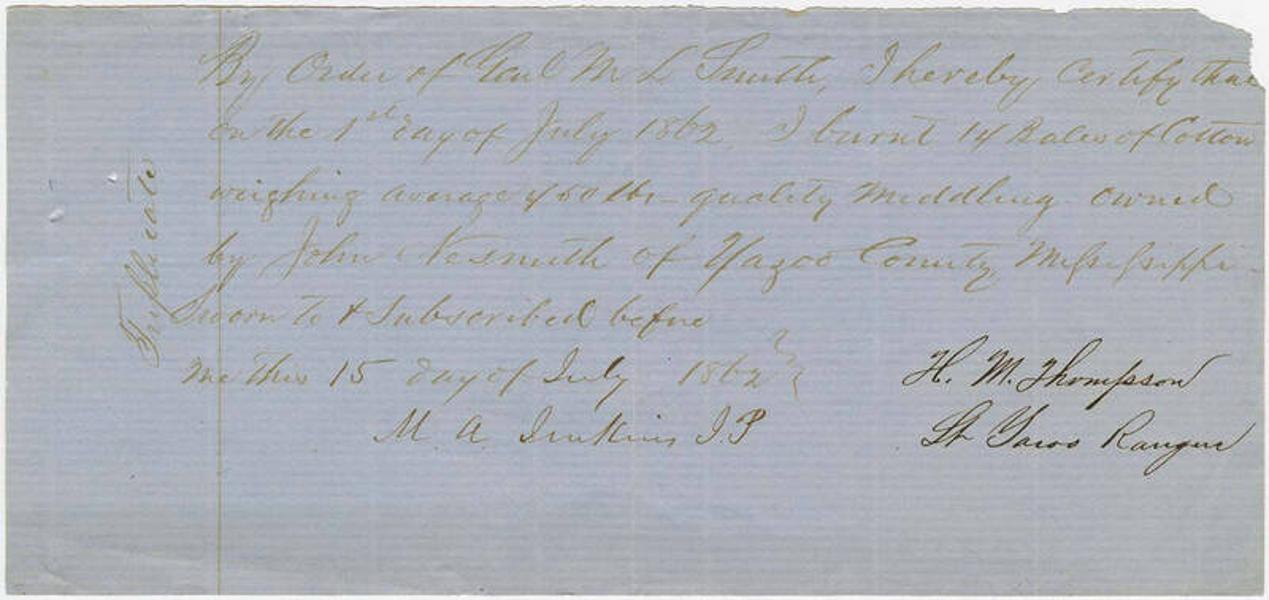 By Order of Genl M L Smith, I hereby Certify that
on the 1st day of July 1862 I burnt 14 Bales of Cotton
weighing average 460 lbs - quality Middling owned
by John Nesmith of Yazoo County Mississippi -
Sworn to & Subscribed before
me this 15 day of July 1862
H. M. Thompson
M A Jenkins J.P
Lt Yazoo Rangers
Triplicate